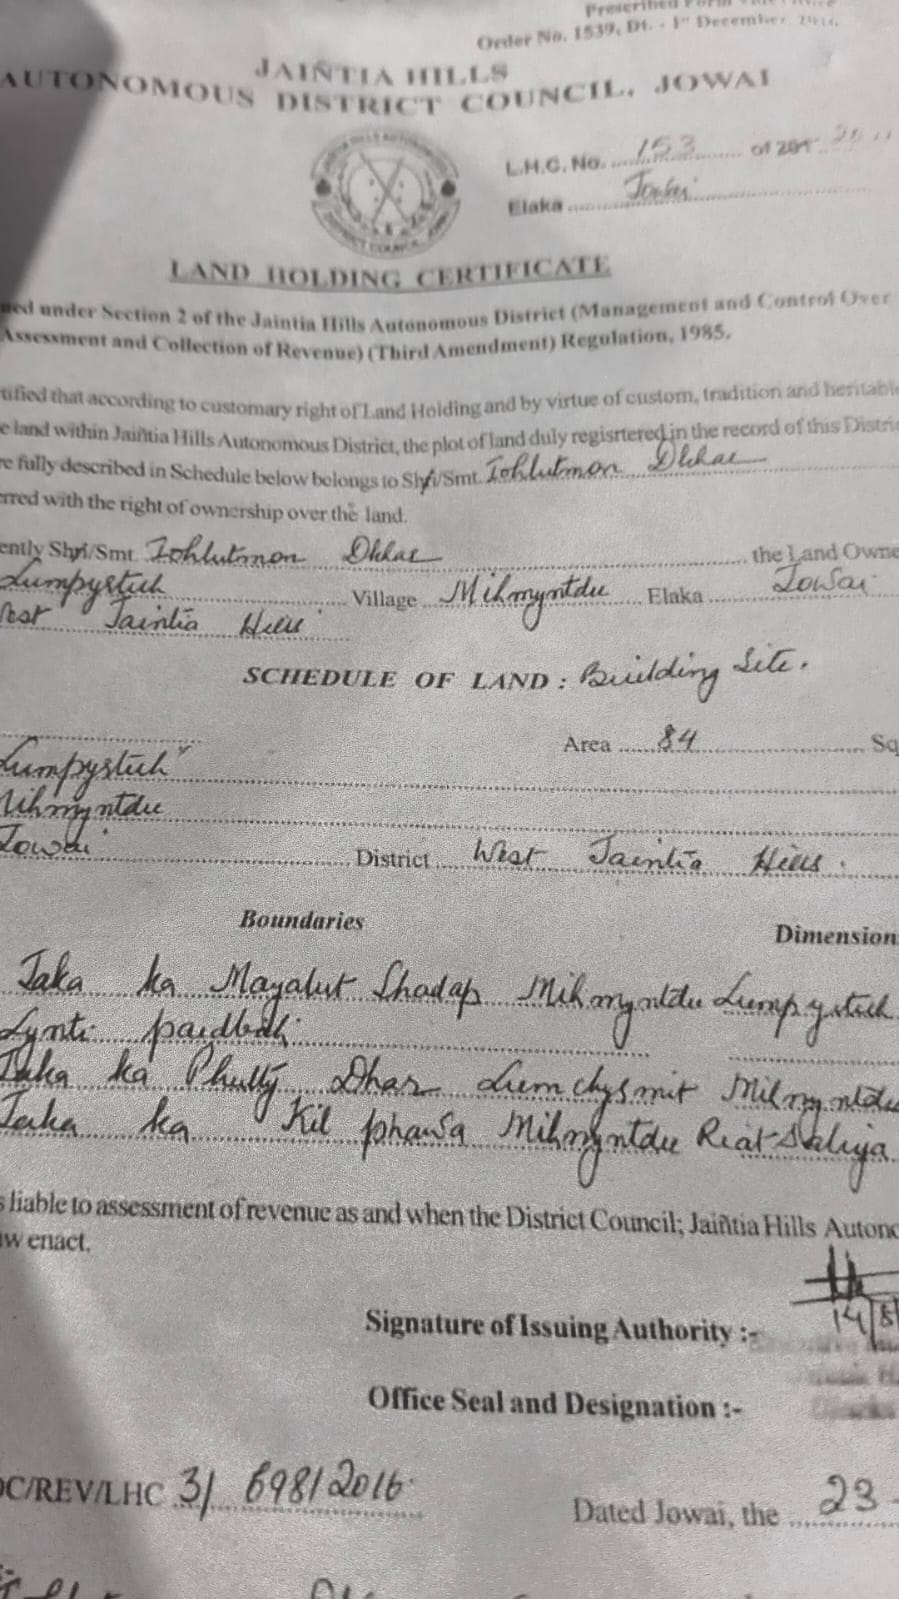 Prescribed Form
Order No. 1539, Dt. - 1st December,
JAIÑTIA HILLS
AUTONOMOUS DISTRICT COUNCIL, JOWAI
L.H.C. No. 153 of 201
Elaka Jowai
LAND HOLDING CERTIFICATE
ued under Section 2 of the Jaintia Hills Autonomous District (Management and Control Over
Assessment and Collection of Revenue) (Third Amendment) Regulation, 1985.
tified that according to customary right of Land Holding and by virtue of custom, tradition and heritable
e land within Jaiñtia Hills Autonomous District, the plot of land duly regisrtered in the record of this Distri
re fully described in Schedule below belongs to Shri/Smt. Iohlutmon Dkhar
rred with the right of ownership over the land.
ently Shri/Smt. Iohlutmon Dkhar the Land Owne
Lumpystuh Village Mihmyntdu Elaka Jowai
est Jaintia Hills
SCHEDULE OF LAND : Building Site.
Area 84 Sq
Lumpystuh
Mihmyntdu
Jowai District West Jaintia Hills.
Boundaries Dimension
Jaka ka Mayalut Shadap Mihmyntdu Lumpystuh
Lynti paidbah
Jaka ka Dhar Lumchysmit Mihmyntdu
Jaka ka Kil phawa Mihmyntdu
s liable to assessment of revenue as and when the District Council; Jaiñtia Hills Autono
w enact.
Signature of Issuing Authority :-
14/8/
Office Seal and Designation :-
DC/REV/LHC 3/698/2016
Dated Jowai, the 23